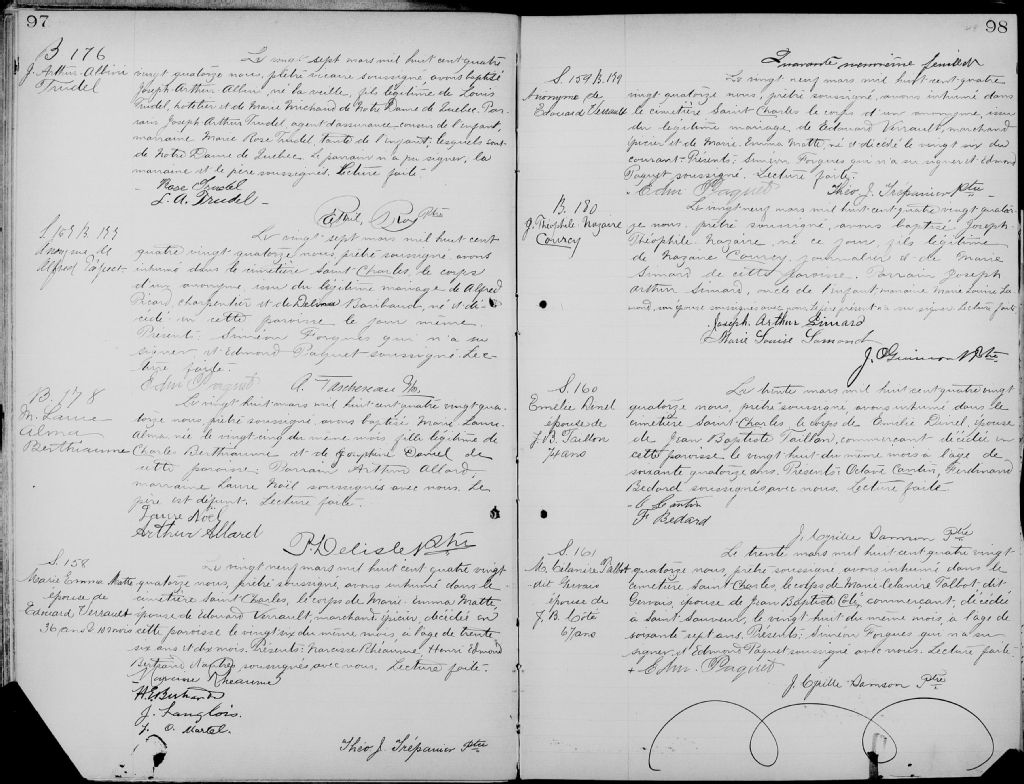 97
B 176
J. Arthur Albini
Trudel
Le vingt sept mars mil huit cent quatre
vingt quatorze nous, prêtre vicaire soussigné, avons baptisé
Joseph Arthur Albini, né la veille, fils légitime de Louis
Trudel, hotelier et de Marie Michaud de Notre Dame de Quebec. Par-
rain Joseph Arthur Trudel, agent d'assurance, cousin de l'enfant,
marraine Marie Rose Trudel, tante de l'enfant, lesquels sont
de Notre Dame de Quebec. Le parrain n'a pu signer, la
marraine et le père soussignés. Lecture faite.
Rose Trudel
L. A. Trudel
Roy Ptre
Anonyme de
Alfred
Le vingt sept mars mil huit cent
quatre vingt quatorze nous, prêtre soussigné, avons
inhumé dans le cimetière Saint Charles, le corps
d'un anonyme, issu du légitime mariage de Alfred
Picard, charpentier et de Delvina Barbaud, né et dé-
cédé en cette paroisse le jour même.
Présent: Siméon Forgues qui n'a su
signer, et Edmond Paquet soussigné. Lec-
ture faite.
Edm Paquet
A. Taschereau
B. 178
M. Laure
Alma
Berthiaume
Le vingt huit mars mil huit cent quatre vingt qua-
torze nous, prêtre soussigné, avons baptisé Marie Laure
Alma née le vingt cinq du même mois, fille légitime de
Charles Berthiaume et de Josephine Daniel de
cette paroisse. Parrain Arthur Allard,
marraine Laure Noël soussignés avec nous. Le
père est défunt. Lecture faite.
Laure Noël
Arthur Allard
P. Delisle Ptre
S. 158
Marie Emma Matte
épouse de
Edouard Verrault
36 ans & 10 mois
Le vingt neuf mars mil huit cent quatre vingt
quatorze nous, prêtre soussigné, avons inhumé dans le
cimetière Saint Charles, le corps de Marie Emma Matte,
épouse de Edouard Verrault, marchand épicier, décédée en
cette paroisse le vingt six du même mois, à l'age de trente
six ans et dix mois. Présents: Narcisse Rhéaume, Henri Edmond
Bertrand soussignés avec nous. Lecture faite.
Narcisse Rheaume
H. E. Bertrand
J. Langlois.
J. O. Martel.
Théo J. Trépanier Ptre
98
Quarante neuvième feuillet
S. 159 B. 179
Anonyme de
Edouard Verrault
Le vingt neuf mars mil huit cent quatre
vingt quatorze nous, prêtre soussigné, avons inhumé dans
le cimetière Saint Charles le corps d'un anonyme, issu
du légitime mariage de Edouard Verrault, marchand
épicier et de Marie Emma Matte, né et décédé le vingt six du
courant. Présents: Siméon Forgues qui n'a su signer et Edmond
Paquet soussigné. Lecture faite.
Edm Paquet
Théo J. Trépanier Ptre
B. 180
J. Théophile Nazaire
Courcy
Le vingt neuf mars mil huit cent quatre vingt quator-
ze nous, prêtre soussigné, avons baptisé Joseph
Théophile Nazaire, né ce jour, fils légitime
de Nazaire Courcy, journalier et de Marie
Simard de cette paroisse. Parrain Joseph
Arthur Simard, oncle de l'enfant marraine Marie Louise La-
mond, soussignés avec nous, le père présent n'a su signer. Lecture faite
Joseph Arthur Simard
Marie Louise Lamond
Ptre
S. 160
Emélie Dinel
épouse de
J. B. Taillon
74 ans
Le trente mars mil huit cent quatre vingt
quatorze nous, prêtre soussigné, avons inhumé dans le
cimetière Saint Charles, le corps de Emélie Dinel, épouse
de Jean Baptiste Taillon, commerçant, décédée en
cette paroisse le vingt huit du même mois à l'age de
soixante quatorze ans. Présents: Octave Cantin, Ferdinand
Bedard soussignés avec nous. Lecture faite
O Cantin
F Bedard
J. Cyrille Damson Ptre
S. 161
M. Celanire Talbot
dit Gervais
épouse de
J. B. Côté
67 ans
Le trente mars mil huit cent quatre vingt
quatorze nous, prêtre soussigné, avons inhumé dans le
cimetière Saint Charles, le corps de Marie Celanire Talbot dit
Gervais, épouse de Jean Baptiste Côté, commerçant, décédée
à Saint Sauveur, le vingt huit du même mois, à l'age de
soixante sept ans. Présents: Simeon Forgues qui n'a su
signer et Edmond Paquet soussigné avec nous. Lecture faite.
Edm. Paquet
J. Cyrille Damson Ptre